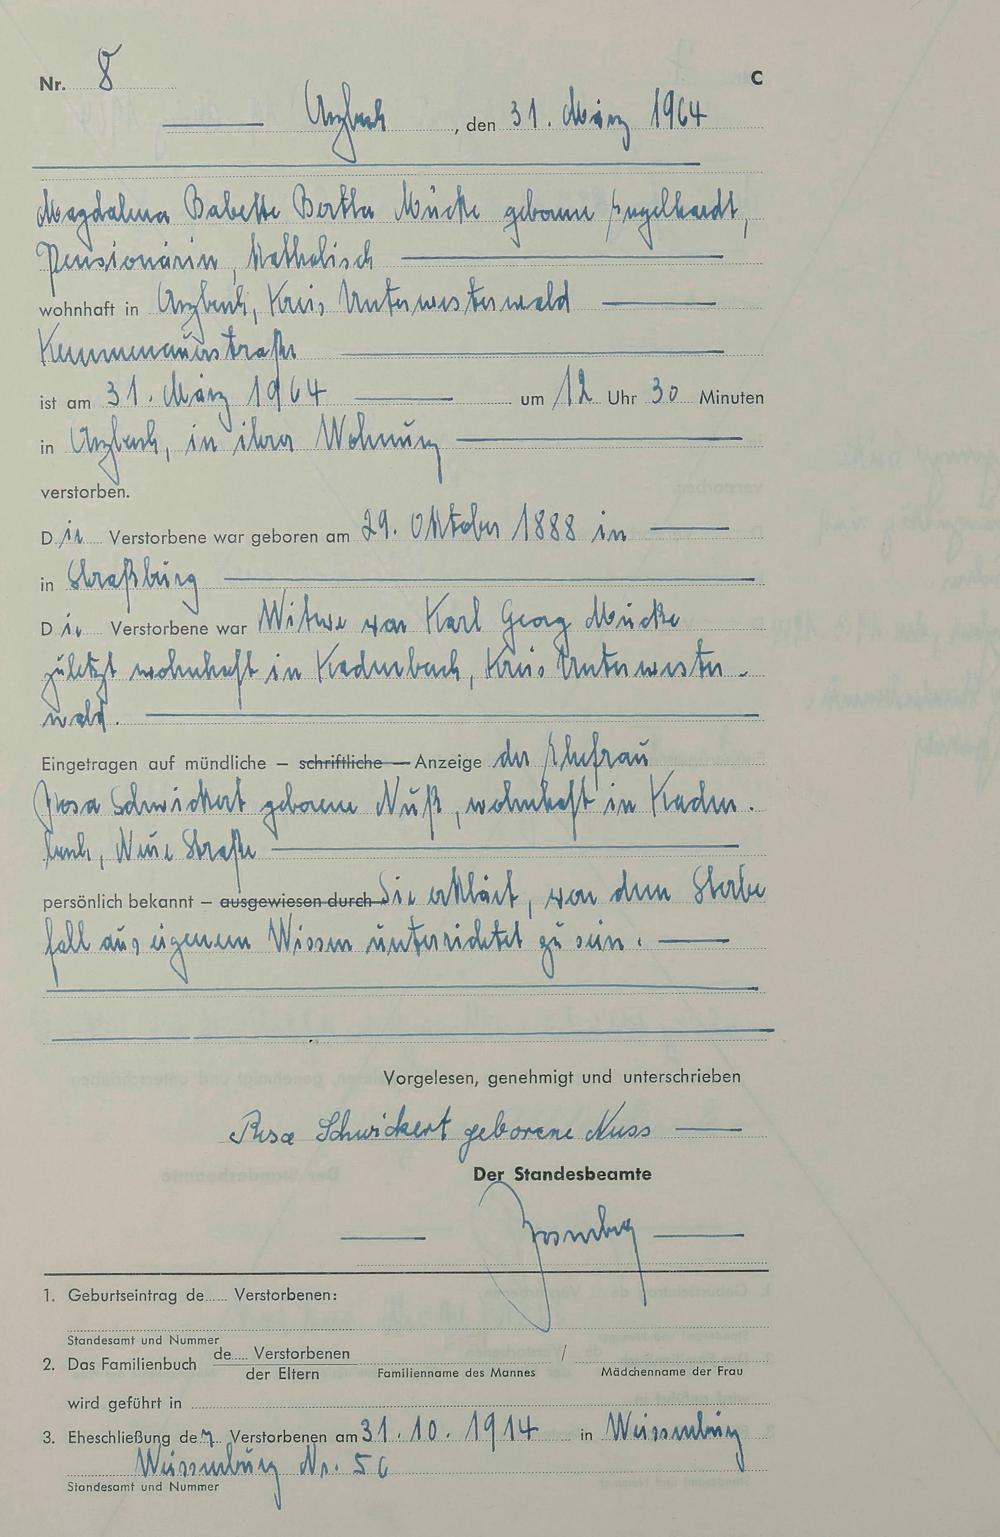 Nr. 8 C
Arzbach, den 31. März 1964
Magdalena Babette Bertha Mücke geborene Engelhardt,
Pensionärin, katholisch
wohnhaft in Arzbach, Kreis Unterwesterwald
Kemmenauerstraße
ist am 31. März 1964 um 12 Uhr 30 Minuten
in Arzbach, in ihrer Wohnung
verstorben.
Die Verstorbene war geboren am 29. Oktober 1888 in
in Straßburg
Die Verstorbene war Witwe von Karl Georg Mücke
zuletzt wohnhaft in Kadenbach, Kreis Unterwester-
wald.
Eingetragen auf mündliche – schriftliche – Anzeige der Ehefrau
Rosa Schwickert geborene Nuß, wohnhaft in Kaden-
bach, Neue Straße
persönlich bekannt – ausgewiesen durch Sie erklärt, von dem Sterbe
fall aus eigenem Wissen unterrichtet zu sein.
Vorgelesen, genehmigt und unterschrieben
Rosa Schwickert geborene Nuss
Der Standesbeamte
1. Geburtseintrag de...... Verstorbenen:
Standesamt und Nummer
2. Das Familienbuch de..... Verstorbenen / der Eltern Familienname des Mannes / Mädchenname der Frau
wird geführt in
3. Eheschließung der Verstorbenen am 31.10.1914 in Weissenburg
Weissenburg Nr. 56
Standesamt und Nummer